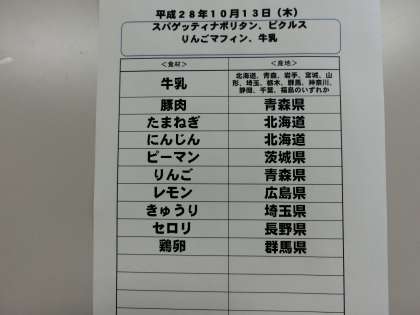 平成28年10月13日（木）
スパゲッティナポリタン、ピクルス
りんごマフィン、牛乳
＜食材＞ ＜産地＞
牛乳 北海道、青森、岩手、宮城、山
形、埼玉、栃木、群馬、神奈川、
静岡、千葉、福島のいずれか
豚肉 青森県
たまねぎ 北海道
にんじん 北海道
ピーマン 茨城県
りんご 青森県
レモン 広島県
きゅうり 埼玉県
セロリ 長野県
鶏卵 群馬県